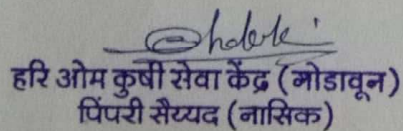 हरि ओम कृषी सेवा केंद्र (गोडावून)
पिंपरी सैय्यद (नासिक)